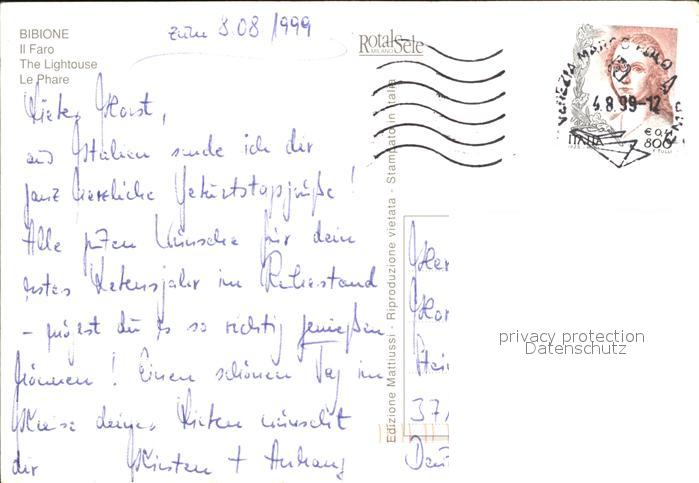 BIBIONE
Il Faro
The Lightouse
Le Phare
zum 8.08 1999
RotalSele
MILANO
VENEZIA MARCO POLO
4.8.99-12
ITALIA
€ 0,41
800
Lieber Horst,
aus Italien sende ich dir
ganz herzliche Geburtstagsgrüße!
Alle guten Wünsche für dein
erstes Lebensjahr im Ruhestand
- mögest du es so richtig genießen
können! Einen schönen Tag im
Kreise deiner Lieben wünscht
dir Kirsten + Anhang
Edizione Mattiussi - Riproduzione vietata - Stampato in Italia
Her
Hor
37
Deut
privacy protection
Datenschutz